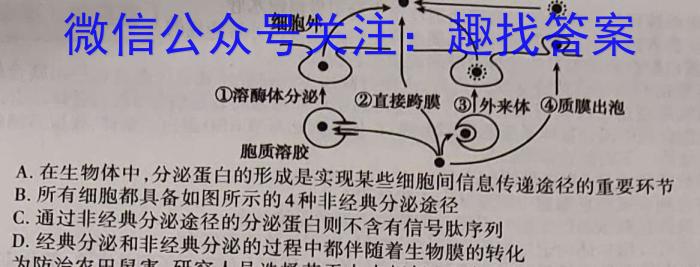 细胞外
微信公众号关注：趣找答案
①溶酶体分泌 ②直接跨膜 ③外来体 ④质膜出泡
胞质溶胶
A. 在生物体中,分泌蛋白的形成是实现某些细胞间信息传递途径的重要环节
B. 所有细胞都具备如图所示的4种非经典分泌途径
C. 通过非经典分泌途径的分泌蛋白则不含有信号肽序列
D. 经典分泌和非经典分泌的过程中都伴随着生物膜的转化
为防治农田鼠害,研究人员选择